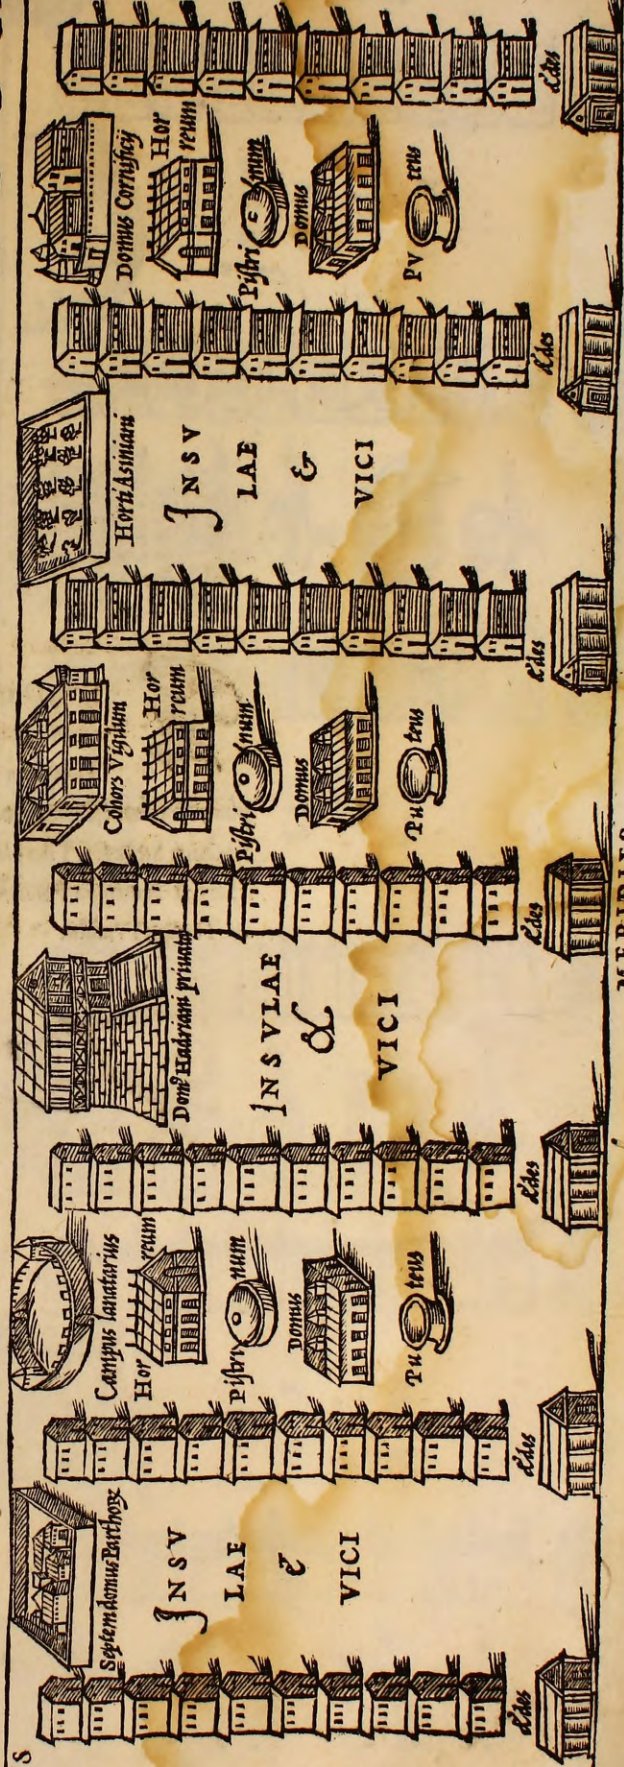 S
Ædes
Septem domus Parthoꝝ
INSV
LAE
&
VICI
Ædes
Campus lanatarius
Hor reum
Pistri num
Domus
Pu teus
Ædes
Domꝰ Hadriani priuata
INSVLAE
&
VICI
Ædes
Cohors Vigilum
Hor reum
Pistri num
Domus
Pu teus
Ædes
Horti Asiniani
INSV
LAE
&
VICI
Ædes
Domus Cornificij
Hor reum
Pistri num
Domus
Pv teus
Ædes
MERIDIES